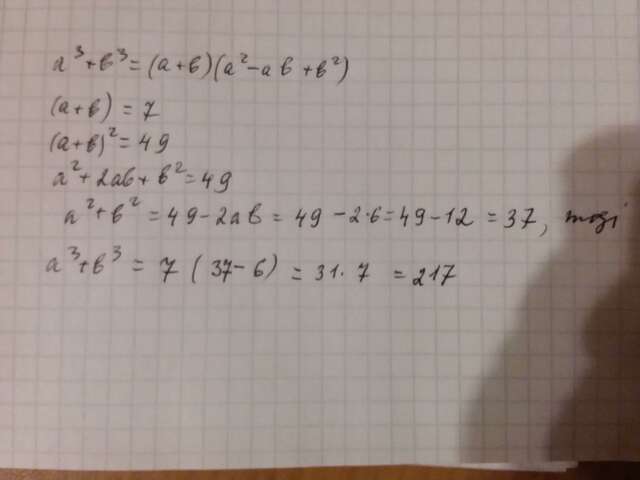 a³+в³=(a+в)(a²-aв+в²)
(a+в)=7
(a+в)²=49
a²+2aв+в²=49
a²+в²=49-2aв=49-2·6=49-12=37, тоді
a³+в³=7(37-6)=31·7=217